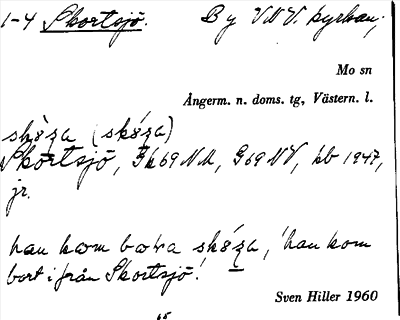 1-4 Skortsjö. By VNV. kyrkan;
Mo sn
Ångerm. n. doms. tg, Västern. l.
skö̀za (skö́za)
Skortsjö, Gk 69 NM, G 69 NV, kb 1947,
jr.
han kom bara skö́za, 'han kom
bort ifrån Skortsjö.'
Sven Hiller 1960